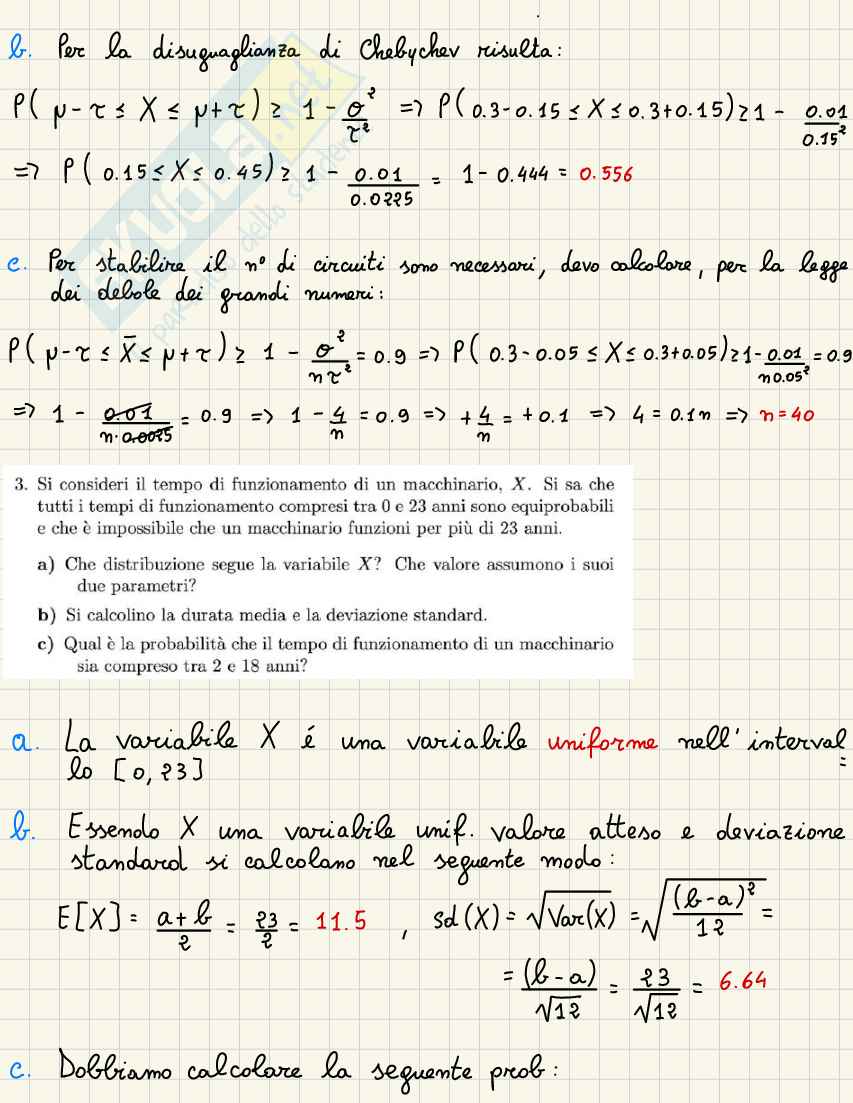 b. Per la disuguaglianza di Chebychev risulta:
P( μ-τ ≤ X ≤ μ+τ ) ≥ 1 - σ²/τ² => P( 0.3-0.15 ≤ X ≤ 0.3+0.15) ≥ 1 - 0.01/0.15²
=> P( 0.15 ≤ X ≤ 0.45) ≥ 1 - 0.01/0.0225 = 1 - 0.444 = 0.556
c. Per stabilire il n° di circuiti sono necessari, devo calcolare, per la legge
dei debole dei grandi numeri:
P( μ-τ ≤ X̄ ≤ μ+τ ) ≥ 1 - σ²/nτ² = 0.9 => P( 0.3-0.05 ≤ X ≤ 0.3+0.05) ≥ 1 - 0.01/n0.05² = 0.9
=> 1 - 0.01/n·0.0025 = 0.9 => 1 - 4/n = 0.9 => +4/n = +0.1 => 4 = 0.1n => n=40
3. Si consideri il tempo di funzionamento di un macchinario, X. Si sa che
tutti i tempi di funzionamento compresi tra 0 e 23 anni sono equiprobabili
e che è impossibile che un macchinario funzioni per più di 23 anni.
a) Che distribuzione segue la variabile X? Che valore assumono i suoi
due parametri?
b) Si calcolino la durata media e la deviazione standard.
c) Qual è la probabilità che il tempo di funzionamento di un macchinario
sia compreso tra 2 e 18 anni?
a. La variabile X é una variabile uniforme nell'interval=
lo [0,23]
b. Essendo X una variabile unif. valore atteso e deviazione
standard si calcolano nel seguente modo:
E[X] = a+b/2 = 23/2 = 11.5 , sd(X) = √Var(X) = √(b-a)²/12 =
= (b-a)/√12 = 23/√12 = 6.64
c. Dobbiamo calcolare la seguente prob: